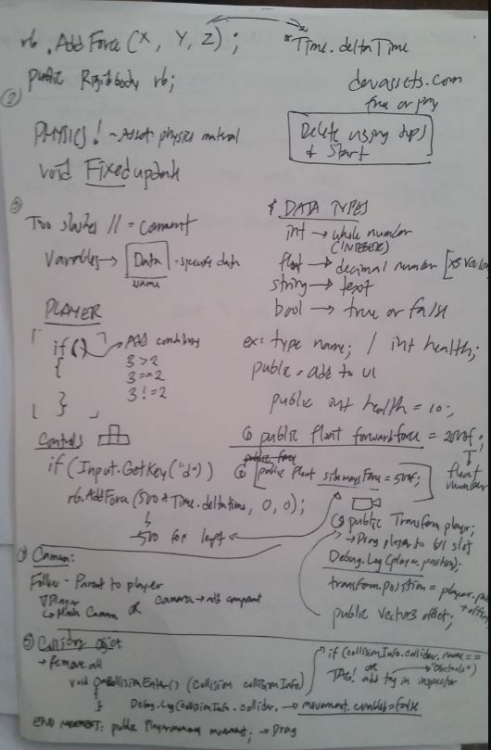 rb. AddForce (X, Y, Z);
* Time.deltaTime
public Rigidbody rb;
devassets.com
free or pay
②
PHYSICS! - Asset physics material
void Fixedupdate
Delete using
& Start
③
Two slashes // = comment
Variables → Data - specific data
name
# DATA TYPES
int → whole number
(INTEGER)
float → decimal number
string → text
bool → true or false
PLAYER
if ()
{
}
→ Add conditions
3 > 2
3 == 2
3 != 2
ex: type name; / int health;
public - add to UI
public int health = 10;
Controls
if (Input.GetKey("d"))
rb.AddForce (500 * Time.deltatime, 0, 0);
-500 for left
public float forwardforce = 2000f;
float
number
public float sidewaysForce = 500f;
public Transform player;
→ Drag player to UI slot
Debug.Log(player.position);
transform.position = player.
public vector3 offset;
Camera:
Follow - Parent to player
Player
Main Camera
or camera → add component
⑤ Collision object
→ Remove all
void OnCollisionEnter() (Collision collisionInfo)
{
} Debug.Log(collisionInfo.collider.
if (collisionInfo.collider.name ==
"Obstacle")
or
TAG! add tag in inspector
→ movement.enabled = false
END MOVEMENT: public Playermovement movement; → Drag